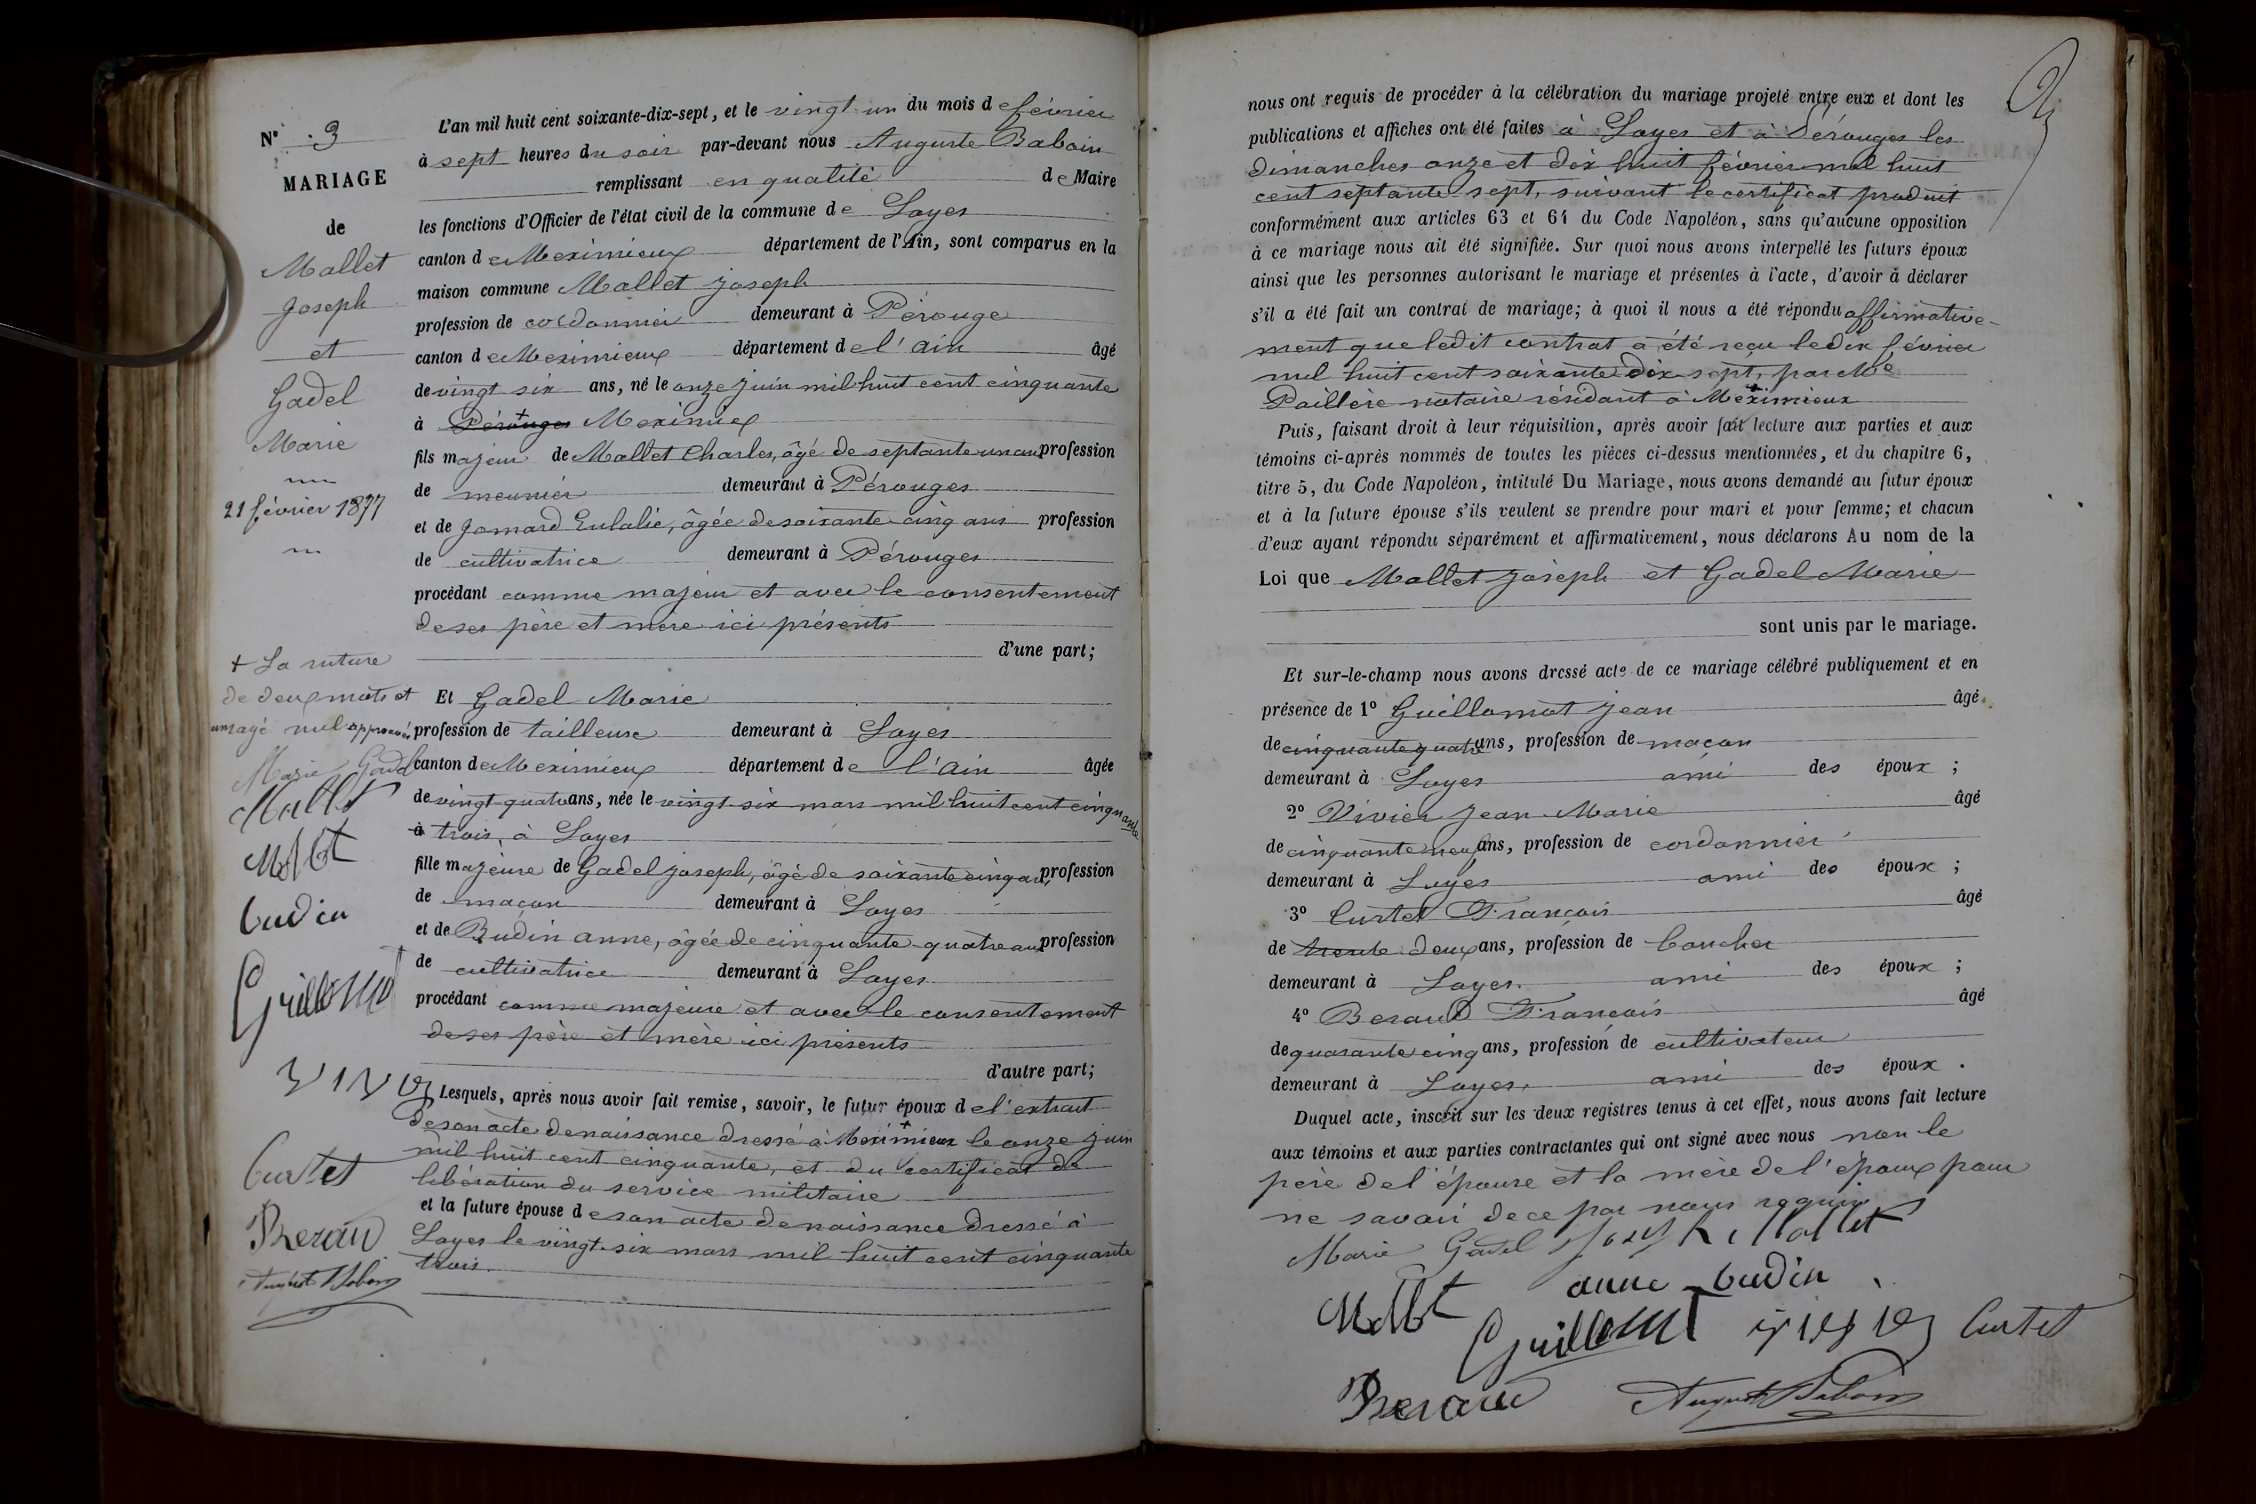 N° 3
MARIAGE
de
Mallet
Joseph
et
Gadel
Marie
21 février 1877
+ La rature
de deux mots et
nul approuvés
Marie Gadel
Mallet
Mollet
budin
Guillomot
VIVIER
Curtet
Beraud
August Baboin
L'an mil huit cent soixante-dix-sept, et le vingt un du mois de février
à sept heures du soir par-devant nous Auguste Baboin
remplissant en qualité de Maire
les fonctions d'Officier de l'état civil de la commune de Loyes
canton de Meximieux département de l'Ain, sont comparus en la
maison commune Mallet Joseph
profession de cordonnier demeurant à Pérouge
canton de Meximieux département de l'ain âgé
de vingt six ans, né le onze juin mil huit cent cinquante
à Pérouges Meximieux
fils majeur de Mallet Charles, âgé de septante un ans profession
de meunier demeurant à Pérouges
et de Jomard Eulalie, âgée de soixante cinq ans profession
de cultivatrice demeurant à Pérouges
procédant comme majeur et avec le consentement
de ses père et mère ici présents
d'une part;
Et Gadel Marie
profession de tailleuse demeurant à Loyes
canton de Meximieux département de l'ain âgée
de vingt quatre ans, née le vingt six mars mil huit cent cinquante
à trois, à Loyes
fille majeure de Gadel Joseph, âgé de soixante cinq ans, profession
de maçon demeurant à Loyes
et de Budin anne, âgée de cinquante quatre ans profession
de cultivatrice demeurant à Loyes
procédant comme majeure et avec le consentement
de ses père et mère ici présents
d'autre part;
Lesquels, après nous avoir fait remise, savoir, le futur époux de l'extrait
de son acte de naissance dressé à Meximieux le onze juin
mil huit cent cinquante, et du certificat de
libération du service militaire
et la future épouse de son acte de naissance dressé à
Loyes le vingt six mars mil huit cent cinquante
trois.
nous ont requis de procéder à la célébration du mariage projeté entre eux et dont les
publications et affiches ont été faites à Loyes et à Pérouges les
dimanches onze et dix huit février mil huit
cent septante sept, suivant le certificat produit
conformément aux articles 63 et 64 du Code Napoléon, sans qu'aucune opposition
à ce mariage nous ait été signifiée. Sur quoi nous avons interpellé les futurs époux
ainsi que les personnes autorisant le mariage et présentes à l'acte, d'avoir à déclarer
s'il a été fait un contrat de mariage; à quoi il nous a été répondu affirmative-
ment que ledit contrat a été reçu le dix février
mil huit cent soixante dix sept, par Me
Paillère notaire résidant à Meximieux
Puis, faisant droit à leur réquisition, après avoir fait lecture aux parties et aux
témoins ci-après nommés de toutes les pièces ci-dessus mentionnées, et du chapitre 6,
titre 5, du Code Napoléon, intitulé Du Mariage, nous avons demandé au futur époux
et à la future épouse s'ils veulent se prendre pour mari et pour femme; et chacun
d'eux ayant répondu séparément et affirmativement, nous déclarons Au nom de la
Loi que Mallet Joseph et Gadel Marie
sont unis par le mariage.
Et sur-le-champ nous avons dressé acte de ce mariage célébré publiquement et en
présence de 1° Guillomot Jean âgé
de cinquante quatre ans, profession de maçon
demeurant à Loyes ami des époux ;
2° Vivier Jean Marie âgé
de cinquante neuf ans, profession de cordonnier
demeurant à Loyes ami des époux ;
3° Curtet François âgé
de trente deux ans, profession de boucher
demeurant à Loyes. ami des époux ;
4° Beraud François âgé
de quarante cinq ans, profession de cultivateur
demeurant à Loyes, ami des époux .
Duquel acte, inscrit sur les deux registres tenus à cet effet, nous avons fait lecture
aux témoins et aux parties contractantes qui ont signé avec nous non le
père de l'épouse et la mère de l'époux pour
ne savoir de ce par nous requis
Marie Gadel Joseph Mallet
Mollet anne budin
Guillomot vivier Curtet
Beraud August Baboin